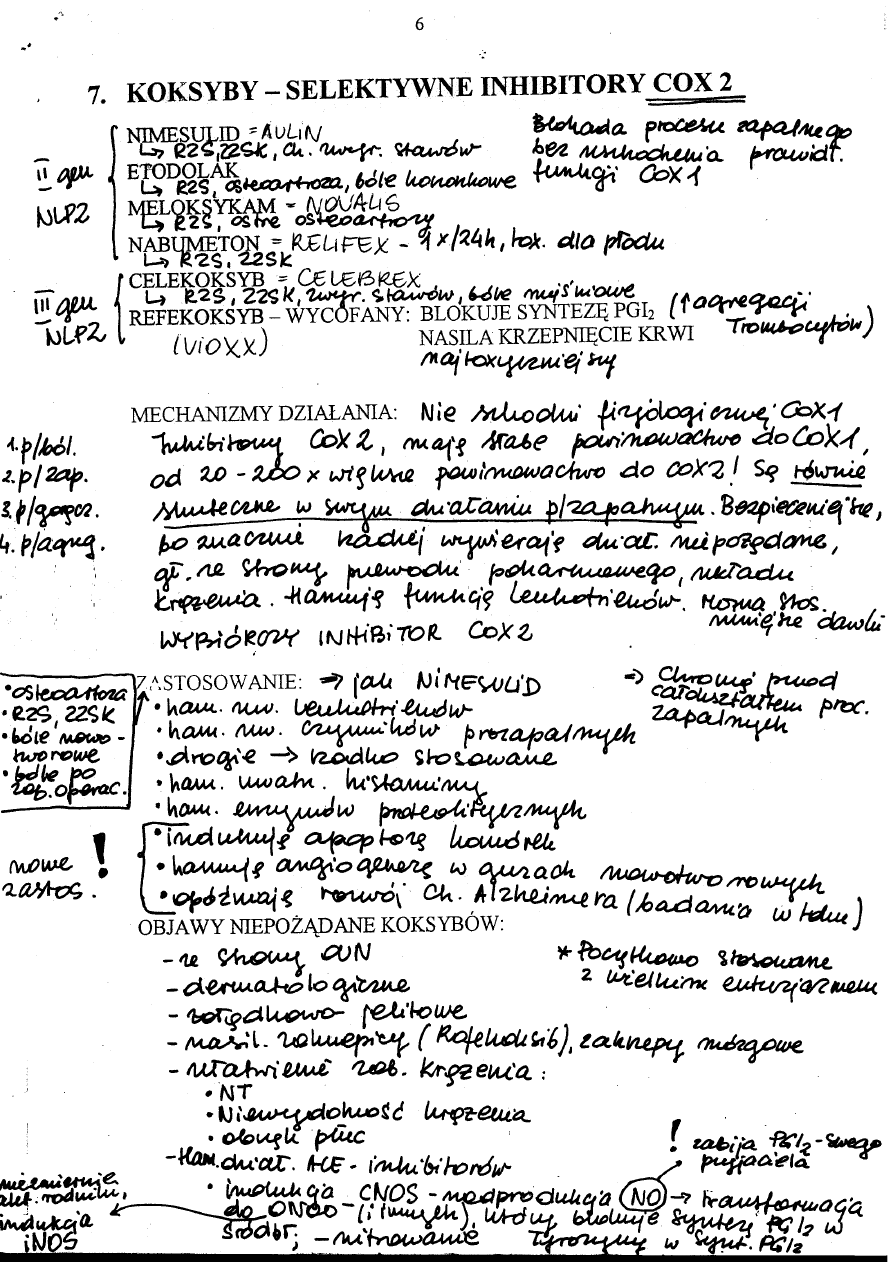 6
7. KOKSYBY – SELEKTYWNE INHIBITORY COX 2
NIMESULID = AULIN
↳ RZS, ZZSK, Ch. zwyr. stawów
ETODOLAK
↳ RZS, osteoartroza, bóle kononkowe
MELOKSYKAM = NOVALIS
↳ RZS, ostre osteoartrozy
NABUMETON = RELIFEX - 1x/24h, tox. dla płodu
↳ RZS, ZZSK
II gen
NLPZ
Blokada procesu zapalnego
bez uszkodzenia prawidł.
funkcji COX1
CELEKOKSYB = CELEBREX
↳ RZS, ZZSK, zwyr. stawów, bóle mięśniowe
REFEKOKSYB – WYCOFANY: BLOKUJE SYNTEZĘ PGI2 (↑agregacji
Trombocytów)
(VIOXX) NASILA KRZEPNIĘCIE KRWI
najtoxyczniejszy
III gen
NLPZ
MECHANIZMY DZIAŁANIA: Nie szkodzi fizjologicznej COX1
Inhibitory COX2, mają słabe powinowactwo do COX1,
od 20 - 200 x większe powinowactwo do COX2! Są równie
skuteczne w swym działaniu p/zapalnym. Bezpieczniejsze,
bo znacznie rzadziej wywierają dział. niepożądane,
gł. ze strony przewodu pokarmowego, układu
krążenia. Hamują funkcję leukotrienów. Można stos.
mniejsze dawki
WYBIÓRCZY INHIBITOR COX2
1. p/ból.
2. p/zap.
3. p/gorącz.
4. p/agreg.
ZASTOSOWANIE: ⇒ jak NIMESULID
• ham. uw. leukotrienów
• ham. uw. czynników prozapalnych
• drogie → rzadko stosowane
• ham. uwaln. histaminy
• ham. enzymów proteolitycznych
• indukują apoptozę komórek
• hamują angiogenezę w guzach nowotworowych
• opóźniają rozwój Ch. Alzheimera (badania w toku)
⇒ Chronią przed
całokształtem proc.
zapalnych
• osteoartroza
• RZS, ZZSK
• bóle nowo-
tworowe
• bóle po
zab. operac.
nowe !
zastos.
OBJAWY NIEPOŻĄDANE KOKSYBÓW:
- ze strony OUN
- dermatologiczne
- żołądkowo jelitowe
- nasil. zakrzepicy (Rofekoksib), zakrzepy mózgowe
- ułatwienie zab. krążenia:
• NT
• Niewydolność krążenia
• obrzęk płuc
- Ham. dział. ACE - inhibitorów
• indukcja CNOS - nadprodukcja NO → transformacja
do ONOO - (i innych), który blokuje syntezę PGI2 w
śródbł; - nitrowanie Tyrozyny w synt. PGI2
* Początkowo stosowane
z wielkim entuzjazmem
! zabija PGI2 - swego
przyjaciela
akt. rodnikn,
indukcja
iNOS